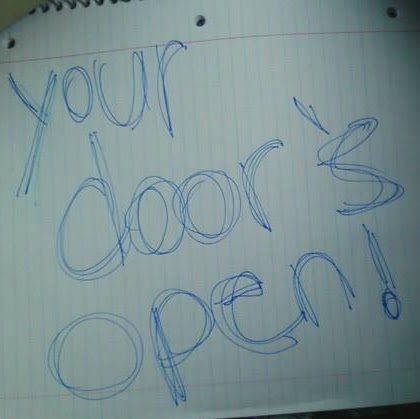 your
door's
open!